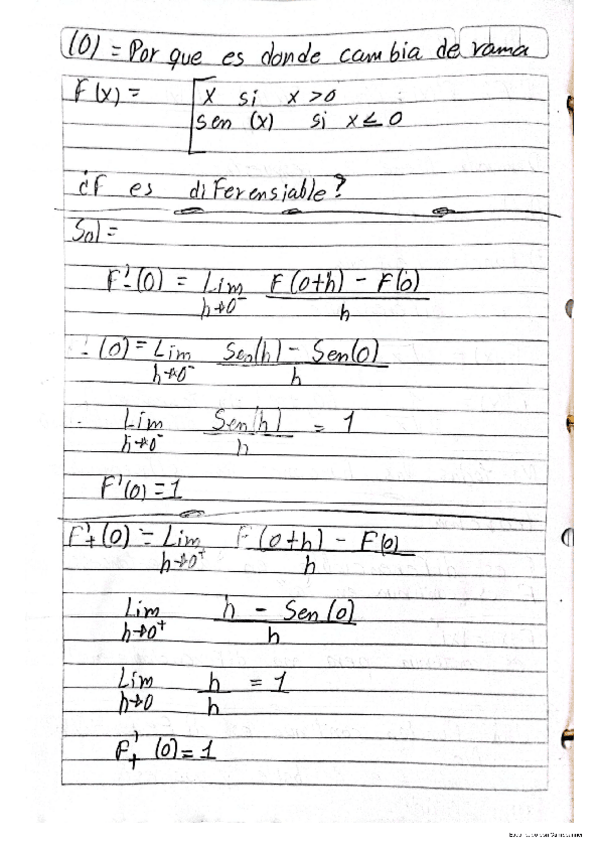 (0) = Por que es donde cambia de rama
F(x) = x si x > 0
sen (x) si x ≤ 0
¿F es diferensiable?
Sol=
F'-(0) = Lim h→0⁻ F(0+h) - F(0) / h
(0) = Lim h→0⁻ Sen(h) - Sen(0) / h
Lim h→0⁻ Sen(h) / h = 1
F'(0) = 1
F'+(0) = Lim h→0⁺ F(0+h) - F(0) / h
Lim h→0⁺ h - Sen(0) / h
Lim h→0 h / h = 1
F'+(0) = 1